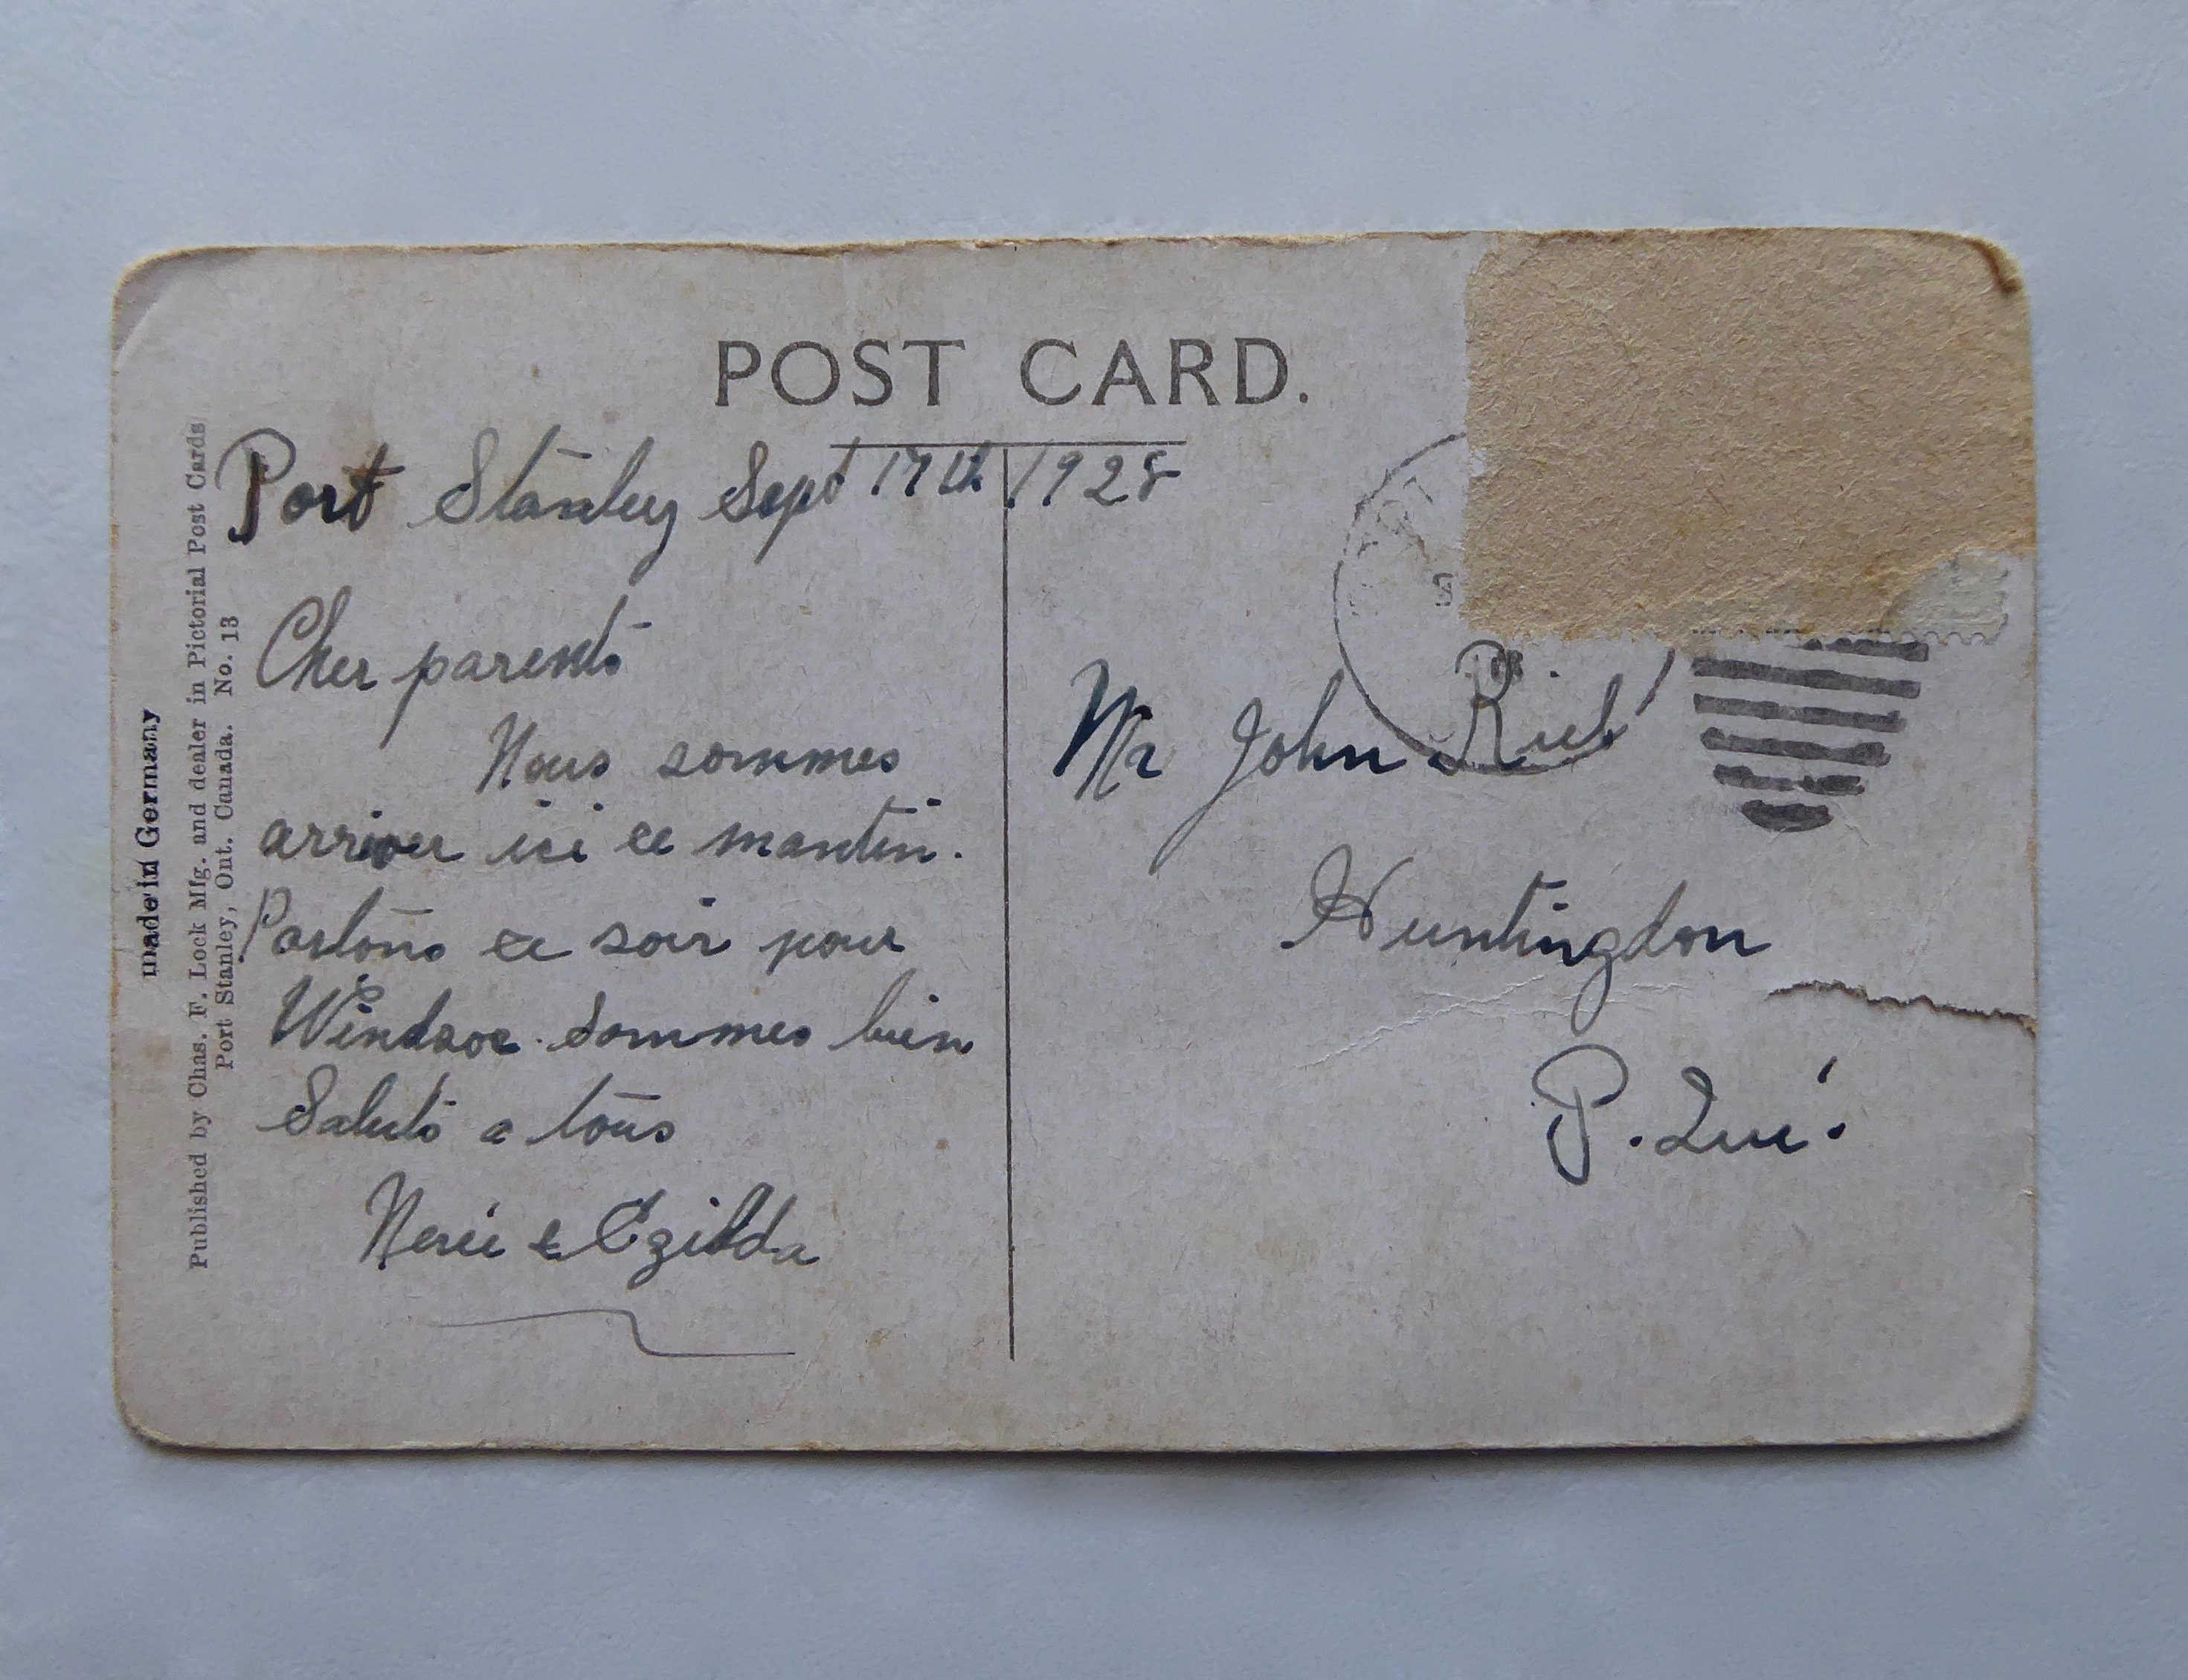 POST CARD.
Port Stanley Sept 17th 1928
Cher parents
Nous sommes
arriver ici ce mantin.
Partons ce soir pour
Windsor. Sommes bien
Saluts a tous
Nerée & Ezilda
Mr John
Huntingdon
P. Qué.
made in Germany
Published by Chas. F. Lock Mfg. and dealer in Pictorial Post Cards
Port Stanley, Ont. Canada. No. 13